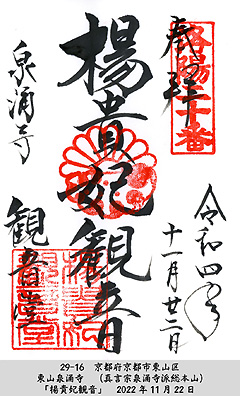 奉拝
洛陽二十番
令和四年
十一月廿二日
楊貴妃観音
泉涌寺
観音堂
29-16 京都府京都市東山区
東山泉涌寺 (真言宗泉涌寺派総本山)
「楊貴妃観音」 2022年11月22日